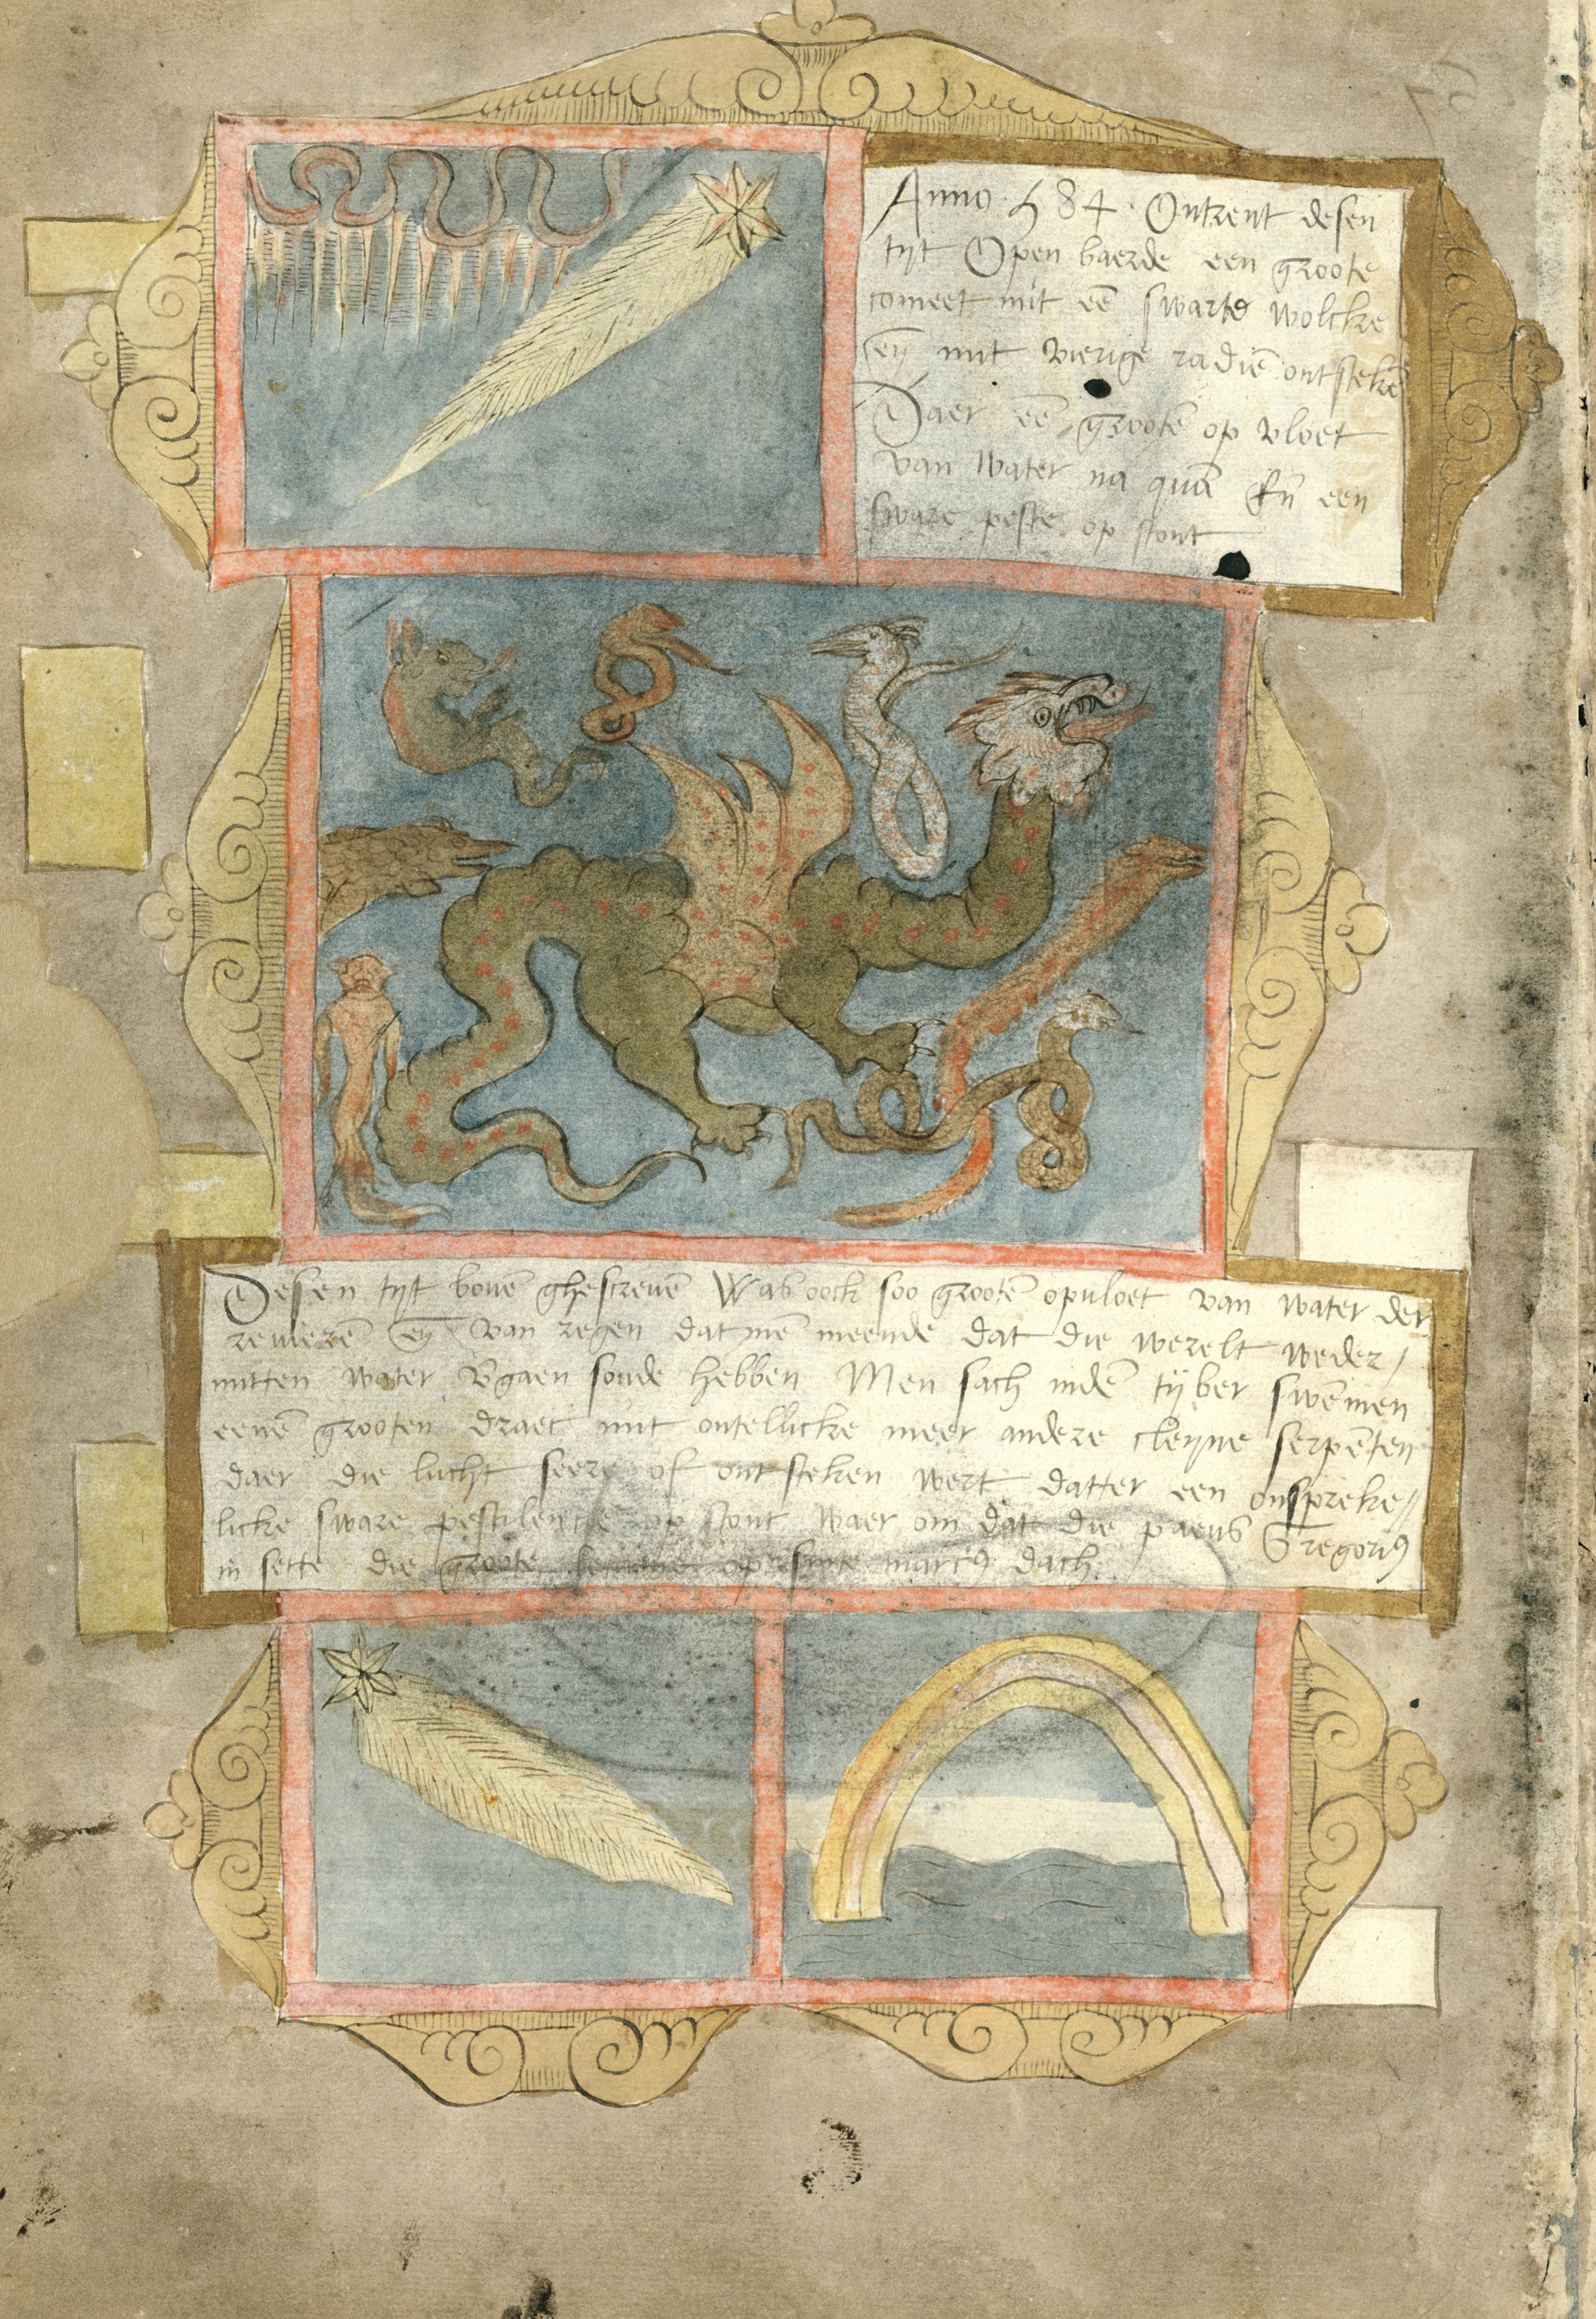 Anno · 584 · Ontrent desen
tijt Openbaerde een groote
comeet mit eē swarte wolcke
eñ mit vierige radiē ontstekē
Daer eē grootē op vloet
van water na quā Eñ een
sware peste op stont
Desen tijt bouē ghescreuē Was oock soo grootē opuloet van water der
reuierē eñ van regen datmē meende dat die werelt weder /
mitten water vgaen soude hebben Men sach indē tijber swēmen
eenē grooten draec mit ontellicke meer andere cleyne serpēten
daer die lucht seere of ontsteken wert datter een onspreke //
licke sware pestilencie op stont waer om dat die paeus Gregori9
in sette die groote op sinte marc9 dach